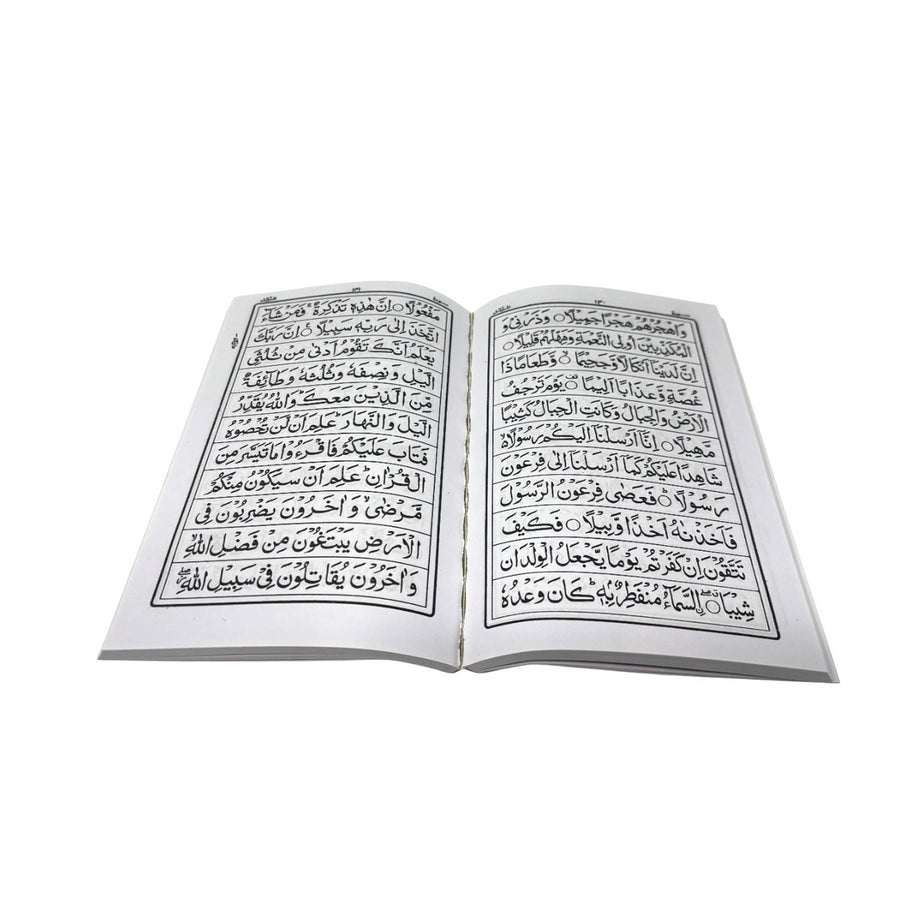 ١٣٠
وَاهْجُرْهُمْ هَجْرًا جَمِيْلًا ○ وَذَرْنِيْ وَ
الْمُكَذِّبِيْنَ اُولِى النَّعْمَةِ وَمَهِّلْهُمْ قَلِيْلًا ○
اِنَّ لَدَيْنَاۤ اَنْكَالًا وَّجَحِيْمًا ○ وَّطَعَامًا ذَا
غُصَّةٍ وَّعَذَابًا اَلِيْمًا ○ يَوْمَ تَرْجُفُ
الْاَرْضُ وَالْجِبَالُ وَكَانَتِ الْجِبَالُ كَثِيْبًا
مَّهِيْلًا ○ اِنَّاۤ اَرْسَلْنَاۤ اِلَيْكُمْ رَسُوْلًا
شَاهِدًا عَلَيْكُمْ كَمَاۤ اَرْسَلْنَاۤ اِلٰى فِرْعَوْنَ
رَسُوْلًا ○ فَعَصٰى فِرْعَوْنُ الرَّسُوْلَ
فَاَخَذْنٰهُ اَخْذًا وَّبِيْلًا ○ فَكَيْفَ
تَتَّقُوْنَ اِنْ كَفَرْتُمْ يَوْمًا يَّجْعَلُ الْوِلْدَانَ
شِيْبَا ○ اۨلسَّمَآءُ مُنْفَطِرٌۢ بِهٖ ؕ كَانَ وَعْدُهٗ
مَفْعُوْلًا ○ اِنَّ هٰذِهٖ تَذْكِرَةٌ ۚ فَمَنْ شَآءَ
اتَّخَذَ اِلٰى رَبِّهٖ سَبِيْلًا ○ اِنَّ رَبَّكَ
يَعْلَمُ اَنَّكَ تَقُوْمُ اَدْنٰى مِنْ ثُلُثَيِ
الَّيْلِ وَنِصْفَهٗ وَثُلُثَهٗ وَطَآئِفَةٌ
مِّنَ الَّذِيْنَ مَعَكَ ؕ وَاللّٰهُ يُقَدِّرُ
الَّيْلَ وَالنَّهَارَ ؕ عَلِمَ اَنْ لَّنْ تُحْصُوْهُ
فَتَابَ عَلَيْكُمْ فَاقْرَءُوْا مَا تَيَسَّرَ مِنَ
الْقُرْاٰنِ ؕ عَلِمَ اَنْ سَيَكُوْنُ مِنْكُمْ
مَّرْضٰى ۙ وَاٰخَرُوْنَ يَضْرِبُوْنَ فِى
الْاَرْضِ يَبْتَغُوْنَ مِنْ فَضْلِ اللّٰهِ ۙ
وَاٰخَرُوْنَ يُقَاتِلُوْنَ فِيْ سَبِيْلِ اللّٰهِ